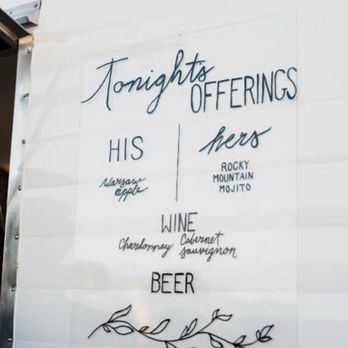 Tonight's OFFERINGS
HIS
Warsaw
apple
hers
ROCKY
MOUNTAIN
MOJITO
WINE
Chardonnay Cabernet
sauvignon
BEER